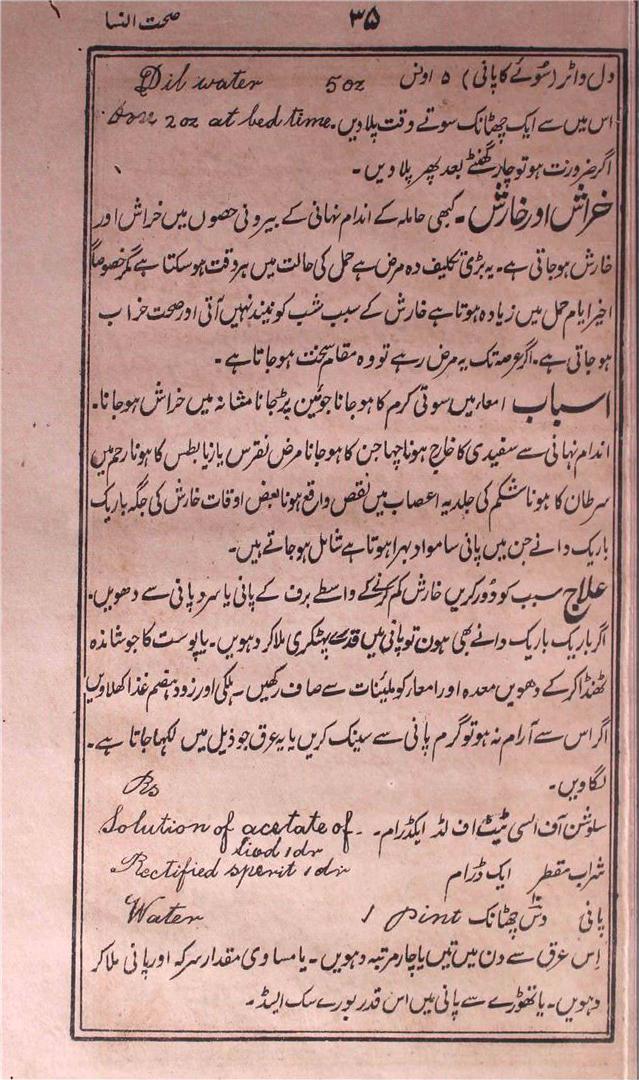 ۳۵
صحت النسا
دل واٹر (سوئے کا پانی) ۵ اونس Dil water 5 oz
اس میں سے ایک چھٹانک سوتے وقت پلا دیں۔ 2 oz at bed time.
اگر ضرورت ہو تو چار گھنٹے بعد پھر پلا دیں۔
خراش اور خارش۔ کبھی حاملہ کے اندام نہانی کے بیرونی حصوں میں خراش اور
خارش ہو جاتی ہے۔ یہ بڑی تکلیف دہ مرض ہے حمل کی حالت میں ہر وقت ہو سکتا ہے مگر خصوصاً
اخیر ایام حمل میں زیادہ ہوتا ہے خارش کے سبب شب کو نیند نہیں آتی اور صحت خراب
ہو جاتی ہے۔ اگر عرصہ تک یہ مرض رہے تو وہ مقام سخت ہو جاتا ہے۔
اسباب امعاء میں سوتی کرم کا ہو جانا جوئیں پڑ جانا مثانہ میں خراش ہو جانا۔
اندام نہانی سے سفیدی کا خارج ہونا چہاجن کا ہو جانا مرض نقرس یا زیابطس کا ہونا رحم میں
سرطان کا ہونا شکم کی جلدیہ اعصاب میں نقص واقع ہونا بعض اوقات خارش کی جگہ باریک
باریک دانے جن میں پانی سا مواد بہرا ہوتا ہے شامل ہو جاتے ہیں۔
علاج سبب کو دُور کریں خارش کم کرنے کے واسطے برف کے پانی یا سرد پانی سے دھویں۔
اگر باریک باریک دانے بھی ہون تو پانی میں قدرے پہٹکری ملا کر دہویں۔ یا پوست کا جوشاندہ
ٹھنڈا کر کے دھویں معدہ اور امعار کو ملینات سے صاف رکھیں۔ ہلکی اور زود ہضم غذا کھلاویں
اگر اس سے آرام نہ ہو تو گرم پانی سے سینک کریں یا یہ عرق جو ذیل میں لکہا جاتا ہے۔
لگا ویں۔
Rs
سلوشن آف اسی ٹیٹ اف لڈ ایکڈرام۔ Solution of acetate of
liod 1 dr
شراب مقطر ایک ڈرام Rectified sperit 1 dr
پانی دس چھٹانک 1 pint Water
اِس عرق سے دن میں تیں یا چار مرتبہ دہویں۔ یا مساوی مقدار سرکہ اور پانی ملا کر
دہویں۔ یا تھوڑے سے پانی میں اس قدر بورے سک ایسڈ۔